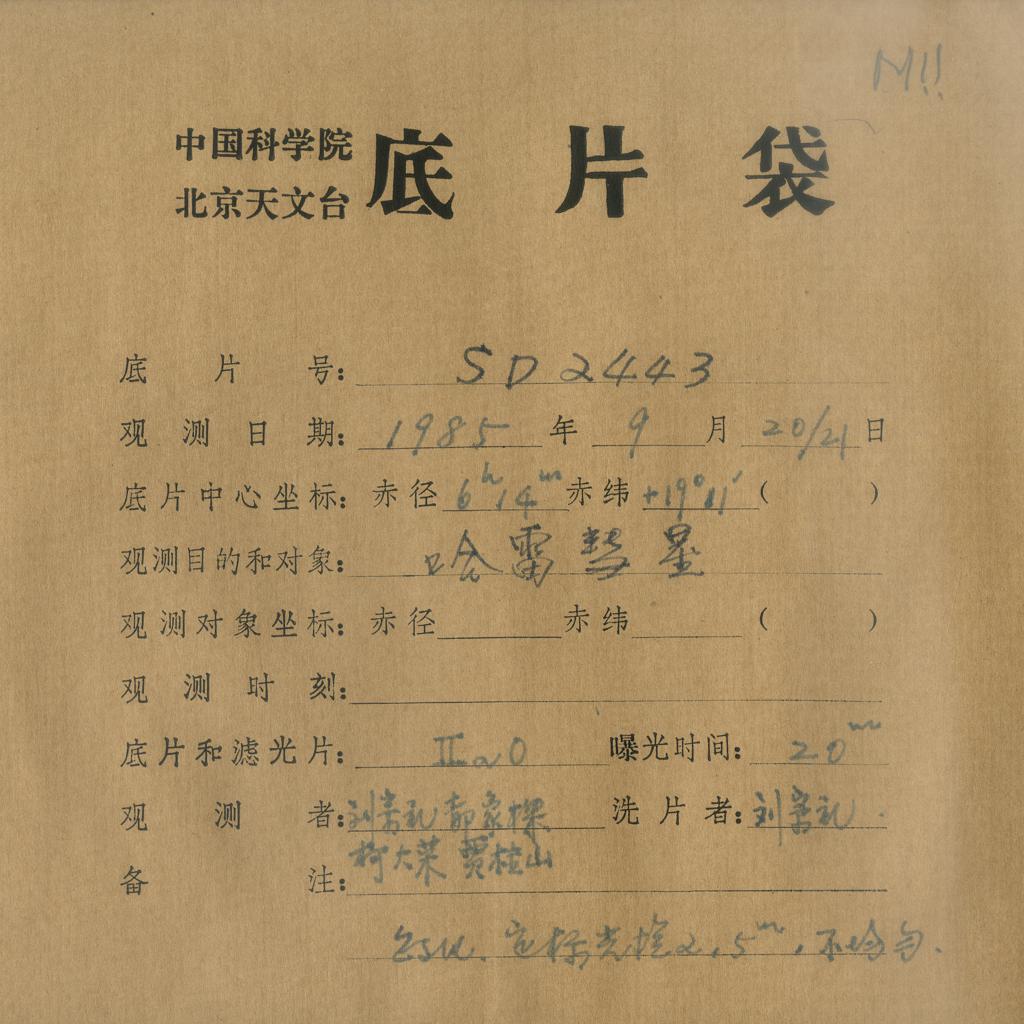 M!!
中国科学院
北京天文台
底片袋
底片号: SD2443
观测日期: 1985 年 9 月 20/21 日
底片中心坐标: 赤径 6h14m 赤纬 +19°11′ ( )
观测目的和对象: 哈雷彗星
观测对象坐标: 赤径 赤纬 ( )
观测时刻:
底片和滤光片: IIaO 曝光时间: 20m
观测者: 刘宗礼 郝象樑 洗片者: 刘宗礼.
柯大荣 贾桂山
备注:
定标光楔2.5m, 不均匀.